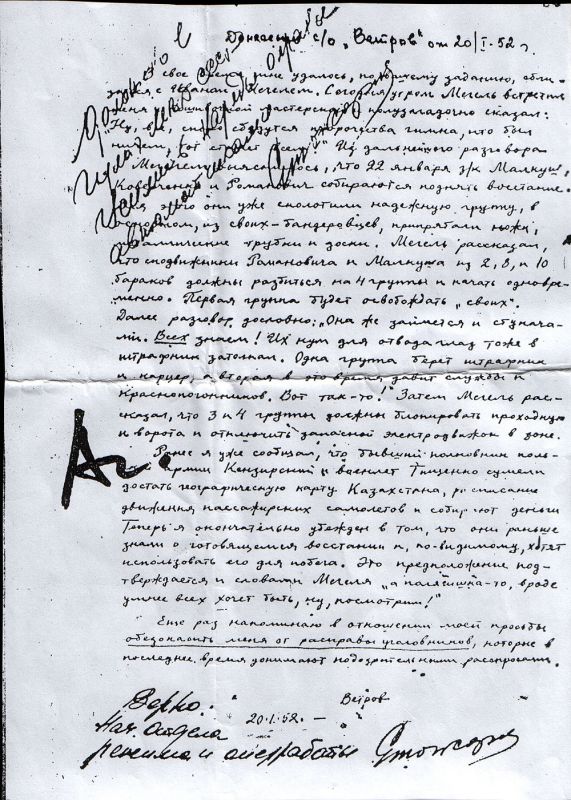 Донесение с/о "Ветров" от 20/I-52 г.
В свое время мне удалось, по вашему заданию, сбли-
зиться с Иваном Мегелем. Сегодня утром Мегель встретил
меня мастерской и полузагадочно сказал:
"Ну, вот, сбудутся пророчества гимна, кто был
ничем, тот станет всем!" Из дальнейшего разговора
с Мегелем выяснилось, что 22 января з/к Малкуш,
Коверченко и Романович собираются поднять восстание.
Для этого они уже сколотили надежную группу, в
основном, из своих-бандеровцев, припрятали ножи,
металлические трубки и доски. Мегель рассказал,
что сподвижники Романовича и Малкуша из 2, 8, и 10
бараков должны разбиться на 4 группы и начать одновре-
менно. Первая группа будет освобождать "своих".
Далее разговор дословно: "Она же займется и стукача-
ми. Всех знаем! Их кум для отвода глаз тоже в
штрафник затолкал. Одна группа берет штрафник
и карцер, а вторая в это время давит службы и
краснопогонников. Вот так-то!" Затем Мегель рас-
сказал, что 3 и 4 группы должны блокировать проходную
и ворота и отключить запасной электродвижок в зоне.
Ранее я уже сообщал, что бывший полковник поль-
армии Кензирский и военлет Тищенко сумели
достать географическую карту Казахстана, расписание
движения пассажирских самолетов и собирают деньги
Теперь я окончательно убежден в том, что они раньше
знали о готовящемся восстании и, по-видимому, хотят
использовать его для побега. Это предположение под-
тверждается и словами Мегеля "а полячишка-то, вроде
умнее всех хочет быть, ну, посмотрим!"
Еще раз напоминаю в отношении моей просьбы
обезопасить меня от расправы уголовников, которые в
последнее время донимают подозрительными расспросами.
Ветров
20.1.52.
Верно:
Нач. отдела
режима и оперработы Стожаров